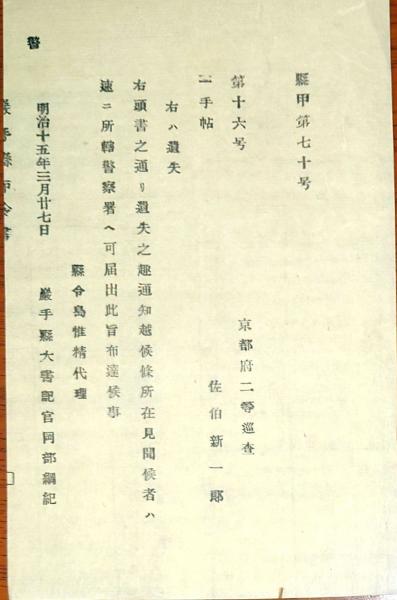 縣甲第七十号
京都府二等巡査
第十六号
佐伯新一郎
一手帖
右ハ遺失
右頭書之通リ遺失之趣通知越候條所在見聞候者ハ
速ニ所轄警察署ヘ可届出此旨布達候事
縣令島惟精代理
明治十五年三月廿七日
巖手縣大書記官岡部綱紀
警